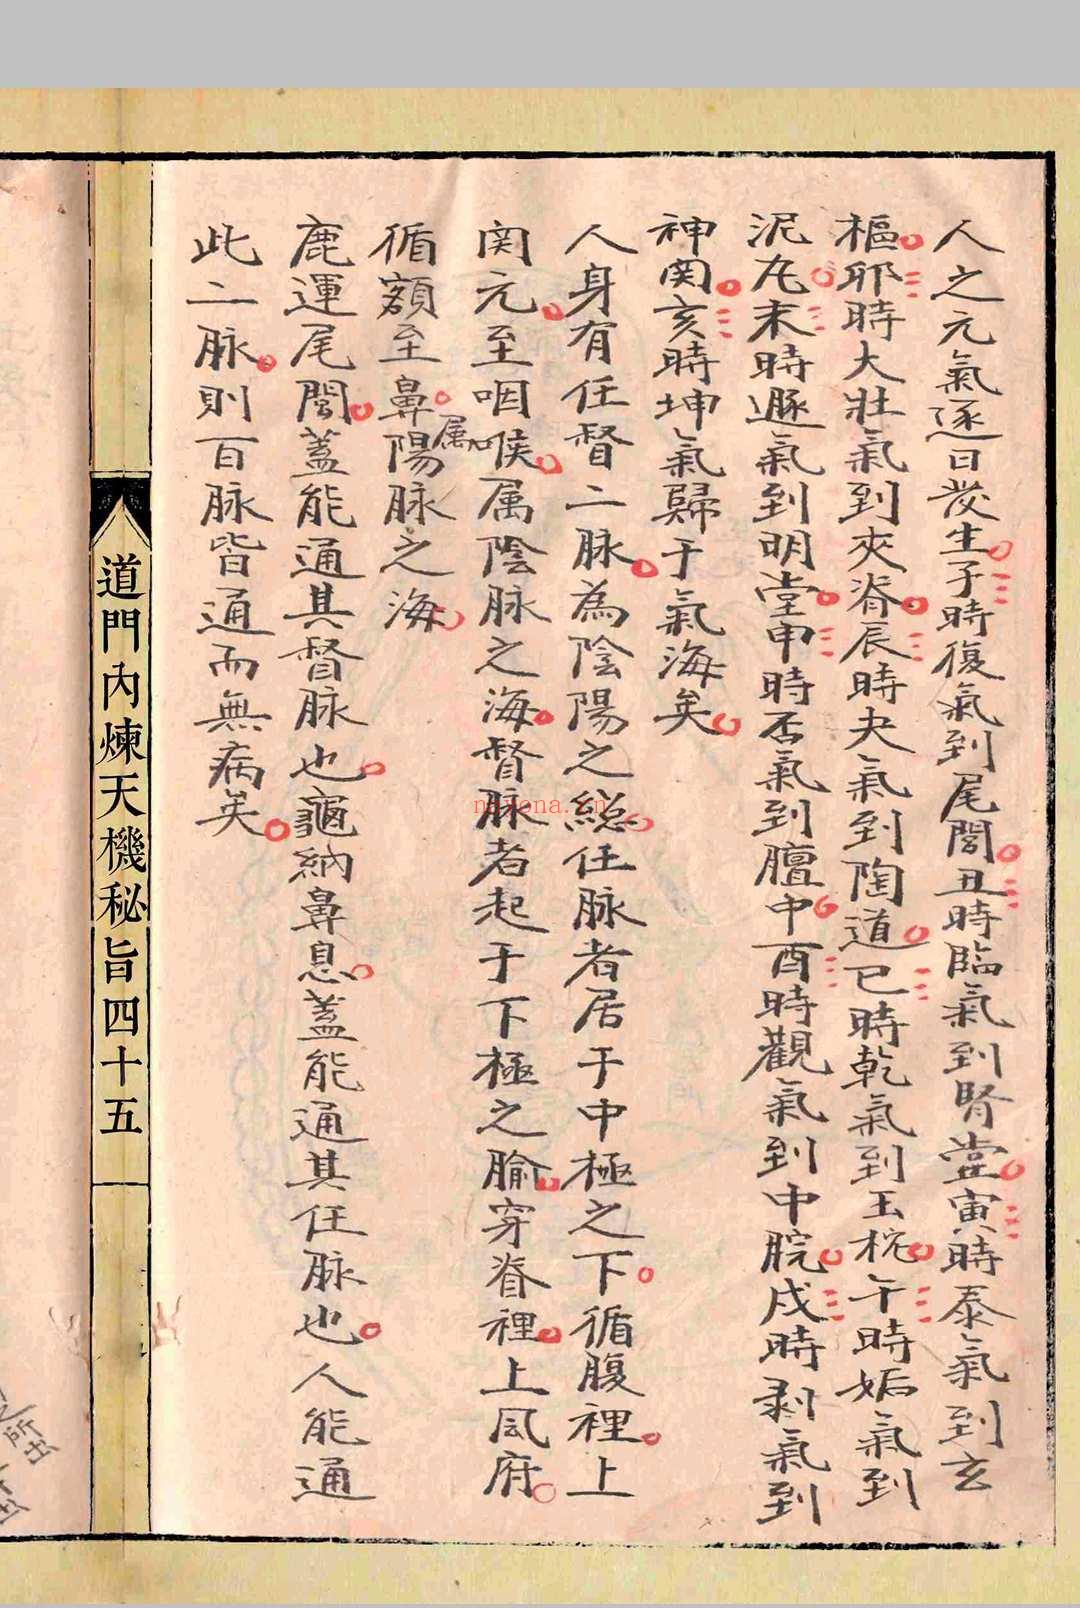 人之元氣逐日發生子時復氣到尾閭丑時臨氣到腎堂寅時泰氣到玄
樞卯時大壯氣到夾脊辰時夬氣到陶道巳時乾氣到玉枕午時姤氣到
泥丸未時遯氣到明堂申時否氣到膻中酉時觀氣到中脘戌時剥氣到
神関亥時坤氣歸于氣海矣
人身有任督二脉為陰陽之総任脉者居于中極之下循腹裡上
関元至咽喉属陰脉之海督脉者起于下極之腧穿脊裡上風府
循額至鼻属陽脉之海
鹿運尾閭蓋能通其督脉也龜納鼻息蓋能通其任脉也人能通
此二脉則百脉皆通而無病矣
道門内煉天機秘旨四十五
nayona.cn
所出